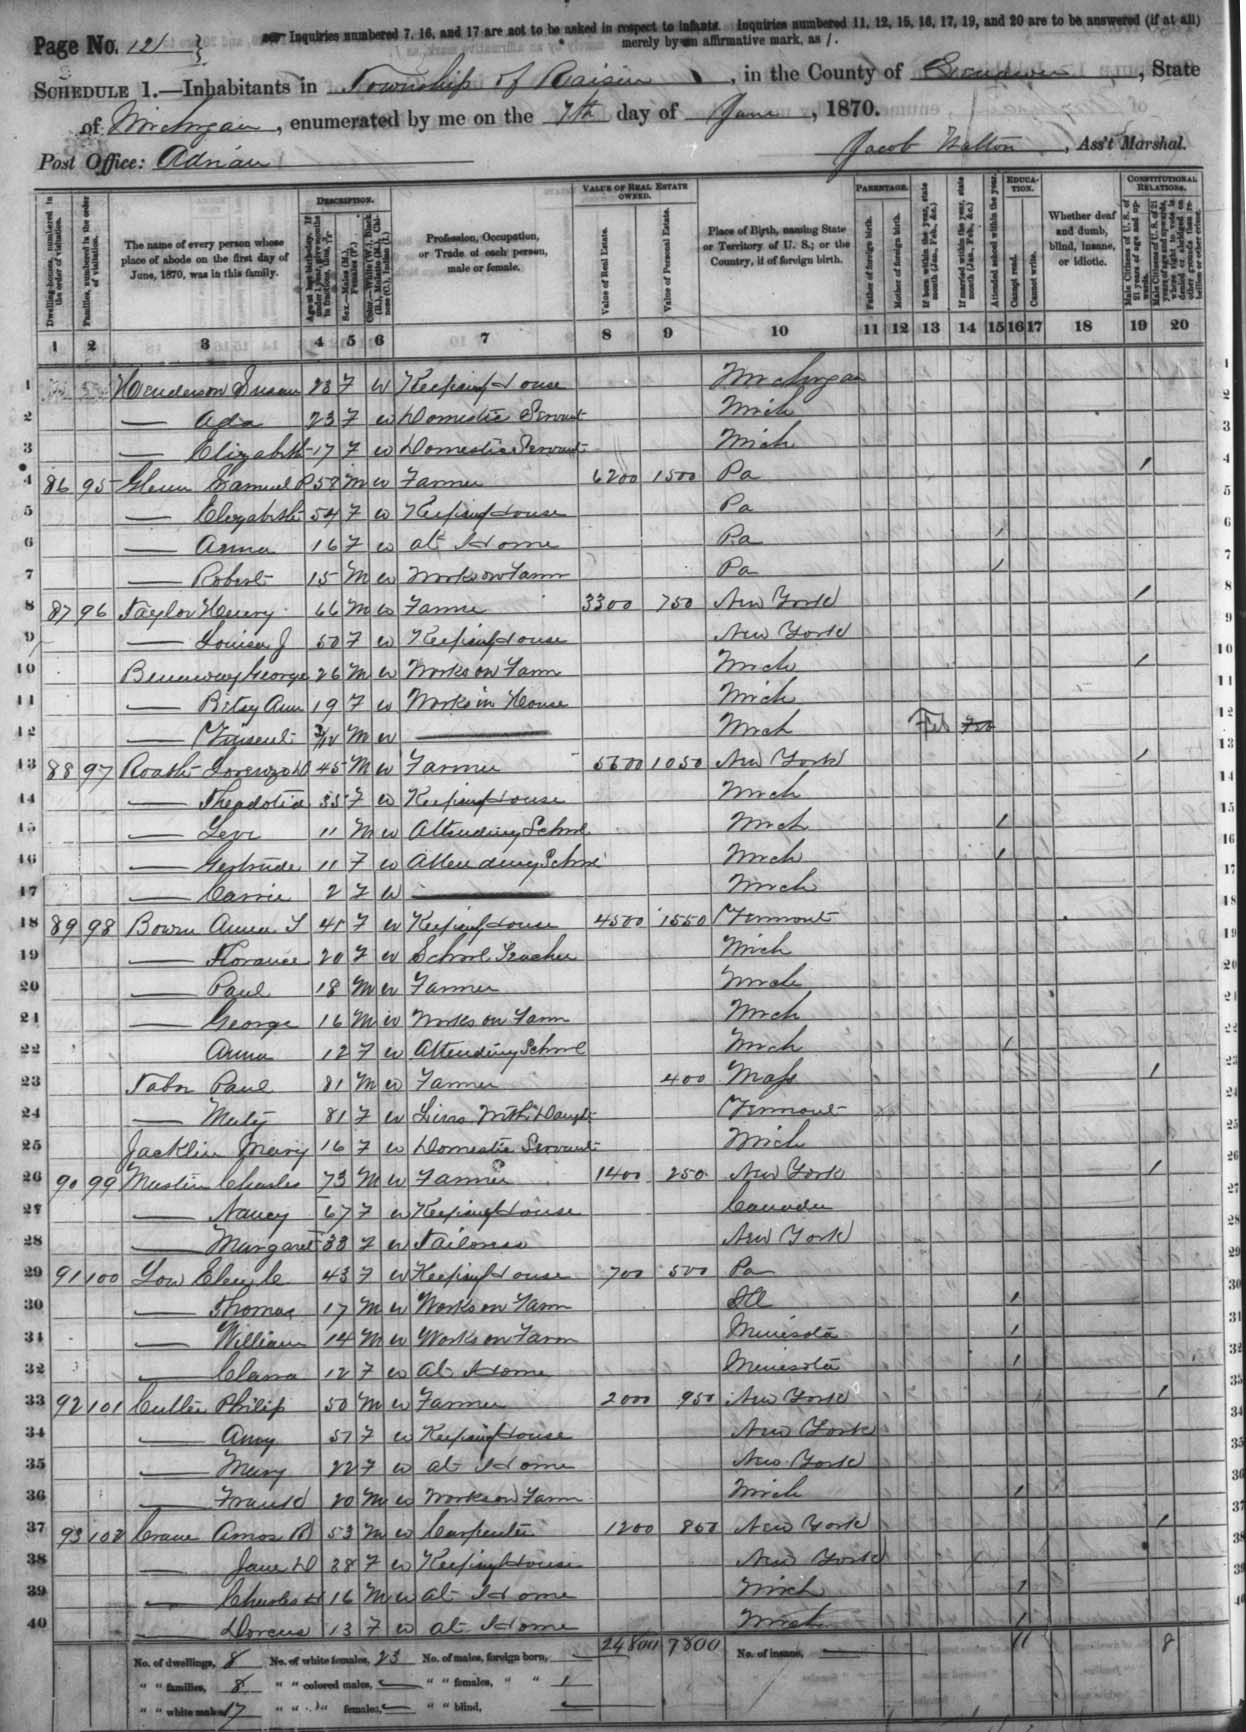 Page No. 121
Inquiries numbered 7, 16, and 17 are not to be asked in respect to infants. Inquiries numbered 11, 12, 15, 16, 17, 19, and 20 are to be answered (if at all)
merely by an affirmative mark, as /.
SCHEDULE 1.—Inhabitants in Township of Raisin, in the County of Lenawee, State
of Michigan, enumerated by me on the 7th day of June, 1870.
Post Office: Adrian Jacob Walton, Ass't Marshal.
DESCRIPTION. VALUE OF REAL ESTATE OWNED. PARENTAGE. EDUCATION. CONSTITUTIONAL RELATIONS.
Dwelling-houses, numbered in the order of visitation.
Families, numbered in the order of visitation.
The name of every person whose place of abode on the first day of June, 1870, was in this family.
Profession, Occupation, or Trade of each person, male or female.
Value of Real Estate.
Value of Personal Estate.
Place of Birth, naming State or Territory of U. S.; or the Country, if of foreign birth.
Father of foreign birth.
Mother of foreign birth.
If born within the year, state month (Jan., Feb., &c.)
If married within the year, state month (Jan., Feb., &c.)
Attended school within the year.
Cannot read.
Cannot write.
Whether deaf and dumb, blind, insane, or idiotic.
1 2 3 4 5 6 7 8 9 10 11 12 13 14 15 16 17 18 19 20
1 Henderson Susan 23 F W Keeping House Michigan
2 — Ada 23 F W Domestic Servant Mich
3 — Elizabeth 17 F W Domestic Servant Mich
4 86 95 Glenn Samuel P 58 M W Farmer 6200 1500 Pa /
5 — Elizabeth 54 F W Keeping House Pa
6 — Anna 16 F W at Home Pa /
7 — Robert 15 M W Works on Farm Pa /
8 87 96 Taylor Henry 66 M W Farmer 3300 750 New York /
9 — Louisa J 50 F W Keeping House New York
10 Benaway George 26 M W Works on Farm Mich /
11 — Betsy Ann 19 F W Works in House Mich
12 — Vinsent 3/12 M W — Mich Feb
13 88 97 Roath Lorenzo D 45 M W Farmer 5600 1050 New York /
14 — Theadotia 35 F W Keeping House Mich
15 — Levi 11 M W Attending School Mich /
16 — Gertrude 11 F W Attending School Mich /
17 — Carrie 2 F W — Mich
18 89 98 Bowen Anna T 45 F W Keeping House 4500 1550 Vermont
19 — Florance 20 F W School Teacher Mich
20 — Paul 18 M W Farmer Mich
21 — George 16 M W Works on Farm Mich
22 Anna 12 F W Attending School Mich /
23 Tabor Paul 81 M W Farmer 400 Mass /
24 — 81 F W Lives With Daught Vermont
25 Jacklin Mary 16 F W Domestic Servant Mich
26 90 99 Mustin Charles 73 M W Farmer 1400 250 New York /
27 — Nancy 67 F W Keeping House Canada
28 — Margaret 33 F W Tailoress New York
29 91 100 Low 43 F W Keeping House 700 500 Pa
30 — Thomas 17 M W Works on Farm Ill /
31 — William 14 M W Works on Farm Minisota /
32 — Clara 12 F W at Home Minisota /
33 92 101 Cutler Philip 50 M W Farmer 2000 950 New York /
34 — Amy 57 F W Keeping House New York
35 — Mary 22 F W at Home New York
36 — Frank 20 M W Works on Farm Mich /
37 93 102 Crane Amos B 53 M W Carpenter 1200 850 New York /
38 — Jane D 38 F W Keeping House New York
39 — Charles H 16 M W at Home Mich /
40 — Dorcus 13 F W at Home Mich /
24800 7800 11 8
No. of dwellings, 8 No. of white females, 23 No. of males, foreign born, — No. of insane, —
" " families, 8 " " colored males, — " " females, " " 1
" " white males, 17 " " " females, — " " blind, —